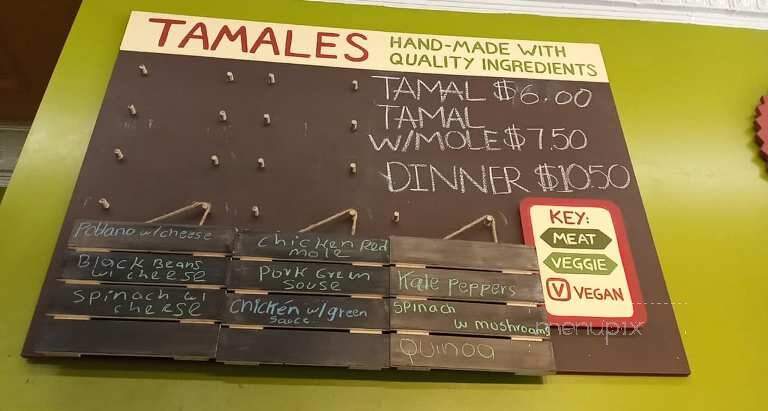 TAMALES
HAND-MADE WITH
QUALITY INGREDIENTS
TAMAL $6.00
TAMAL
W/MOLE $7.50
DINNER $10.50
KEY:
MEAT
VEGGIE
V VEGAN
Poblano w/cheese
Black Beans
w/ cheese
Spinach w/
cheese
Chicken Red
mole
Pork Green
Souse
Chicken w/green
sauce
Kale Peppers
Spinach
w mushrooms
Quinoa
menupix